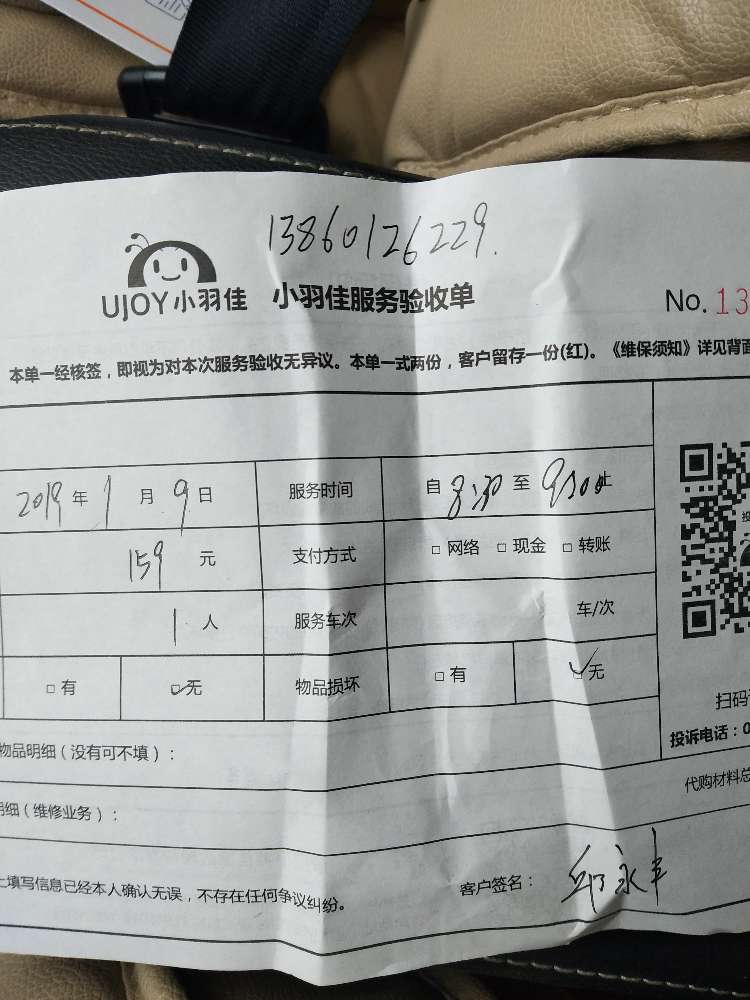 13860126229.
UJOY小羽佳 小羽佳服务验收单 No.13
本单一经核签，即视为对本次服务验收无异议。本单一式两份，客户留存一份(红)。《维保须知》详见背面
2019年1月9日 服务时间 自8:30至9:30止
159元 支付方式 □网络 □现金 □转账
1人 服务车次 车/次
□有 ☑无 物品损坏 □有 ☑无
扫码
物品明细（没有可不填）： 投诉电话：0
明细（维修业务）： 代购材料总
上填写信息已经本人确认无误，不存在任何争议纠纷。 客户签名：邱永丰